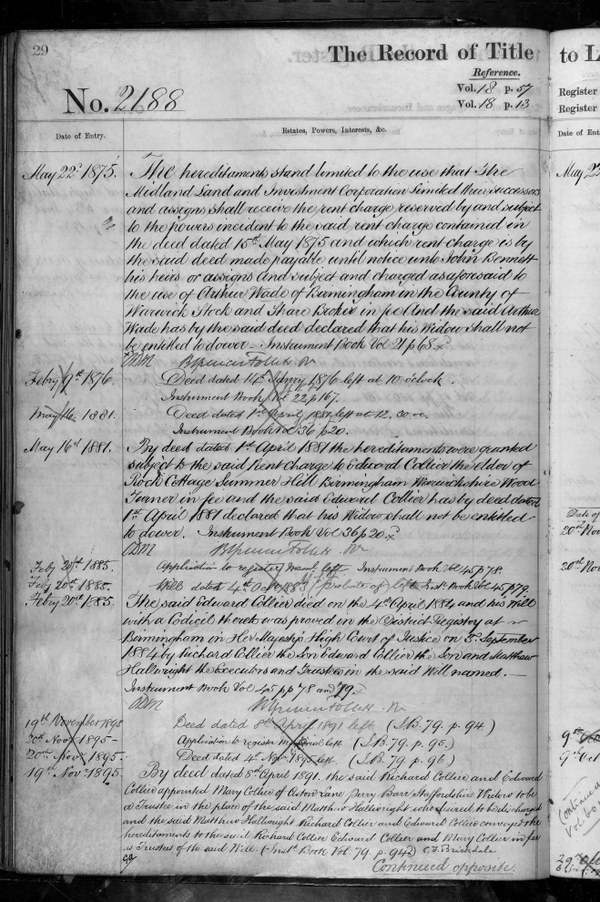 29
The Record of Title
to L
Reference.
Vol. 18 p. 57
Vol. 18 p. 13
No. 2188
Register
Register
Date of Entry.
Estates, Powers, Interests, &c.
Date of Ent
May 22d 1875.
The hereditaments stand limited to the use that The
Midland Land and Investment Corporation Limited their successors
and assigns shall receive the rent charge reserved by and subject
to the powers incident to the said rent charge contained in
the deed dated 15th May 1875 and which rent charge is by
the said deed made payable until notice unto John Bennett
his heirs or assigns And subject and charged as aforesaid to
the use of Arthur Wade of Birmingham in the County of
Warwick Stock and Share Broker in fee And the said Arthur
Wade has by the said deed declared that his Widow shall not
be entitled to dower. Instrument Book Vol 21 p 68.
Feby 9th 1876.
Deed dated 14th 1876 left at 10 o'clock.
Instrument Book Vol 22 p 167.
May 16 1881.
Deed dated 1st April 1881 left at 12.30
Instrument Book Vol 36 p 20.
May 16th 1881.
By deed dated 1st April 1881 the hereditaments were granted
subject to the said Rent charge to Edward Collier the elder of
Rock Cottage Summer Hill Birmingham Warwickshire Wood
Turner in fee and the said Edward Collier has by deed dated
1st April 1881 declared that his Widow shall not be entitled
to dower. Instrument Book Vol 36 p 20.
Feby 20th 1885.
Application to register left Instrument Book Vol 45 p 78.
Feby 20th 1885.
Will dated 4th Octr 1883 probate of left Inst. Book Vol 45 p 79.
Feby 20th 1885.
The said Edward Collier died on the 4th April 1884 and his Will
with a Codicil thereto was proved in the District Registry at
Birmingham in Her Majestys High Court of Justice on 5th September
1884 by Richard Collier the Son Edward Collier the Son and Matthew
Hallwright the Executors and Trustees in the said Will named.
Instrument Book Vol 45 pp 78 and 79.
19th November 1895
Deed dated 8th April 1891 left (I.B. 79. p. 94)
20th Nov 1895
Application to register left (I.B. 79. p. 95)
20th Nov 1895.
Deed dated 4th Nov 1895 left (I.B. 79. p. 96)
19th Nov 1895.
By deed dated 8th April 1891. the said Richard Collier and Edward
Collier appointed Mary Collier of Aston Lane Perry Barr Staffordshire Widow to be
a Trustee in the place of the said Matthew Hallwright who desired to be discharged
and the said Matthew Hallwright Richard Collier and Edward Collier conveyed the
hereditaments to the said Richard Collier Edward Collier and Mary Collier in fee
as Trustees of the said Will. (Inst. Book Vol. 79. p. 94) C. F. Brickdale
Continued opposite.
May 22
Date of
20th Nov
20th Nov
9th
9th Oct
Continued
Vol 60
29th